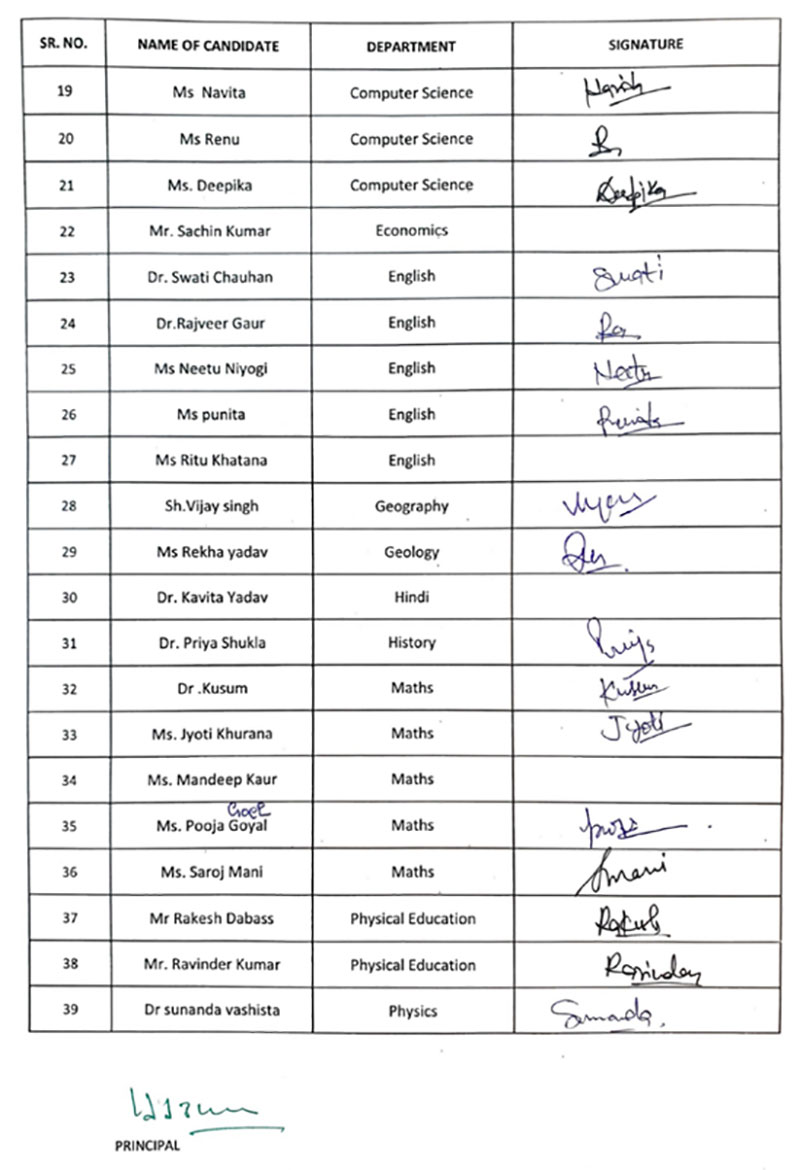 SR. NO. NAME OF CANDIDATE DEPARTMENT SIGNATURE
19 Ms Navita Computer Science
20 Ms Renu Computer Science
21 Ms. Deepika Computer Science Deepika
22 Mr. Sachin Kumar Economics
23 Dr. Swati Chauhan English Swati
24 Dr.Rajveer Gaur English
25 Ms Neetu Niyogi English Neetu
26 Ms punita English
27 Ms Ritu Khatana English
28 Sh.Vijay singh Geography
29 Ms Rekha yadav Geology
30 Dr. Kavita Yadav Hindi
31 Dr. Priya Shukla History
32 Dr .Kusum Maths Kusum
33 Ms. Jyoti Khurana Maths Jyoti
34 Ms. Mandeep Kaur Maths
Goel
35 Ms. Pooja Goyal Maths
36 Ms. Saroj Mani Maths Smani
37 Mr Rakesh Dabass Physical Education Rakesh
38 Mr. Ravinder Kumar Physical Education Ravinder
39 Dr sunanda vashista Physics Sunanda.
PRINCIPAL